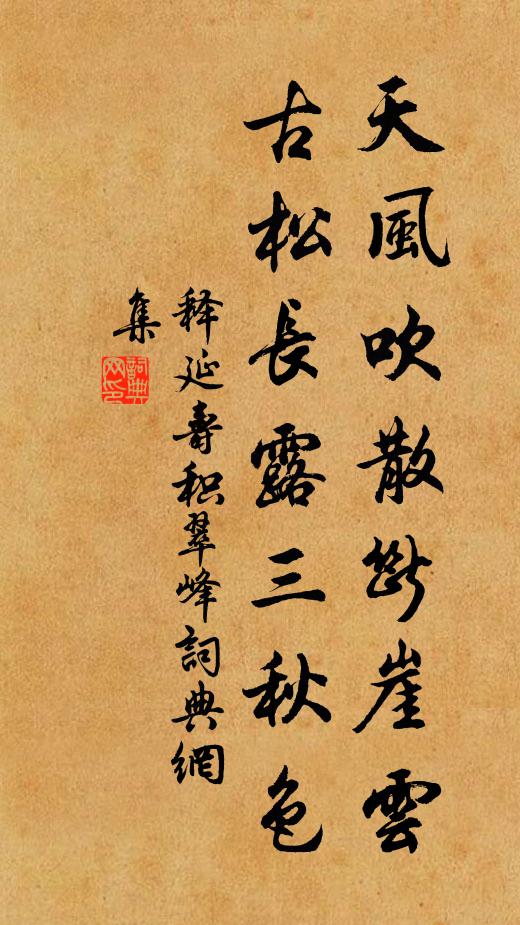 天風吹散斷崖雲
古松長露三秋色
释延壽积翠峰詞典網
集
詞典
网印